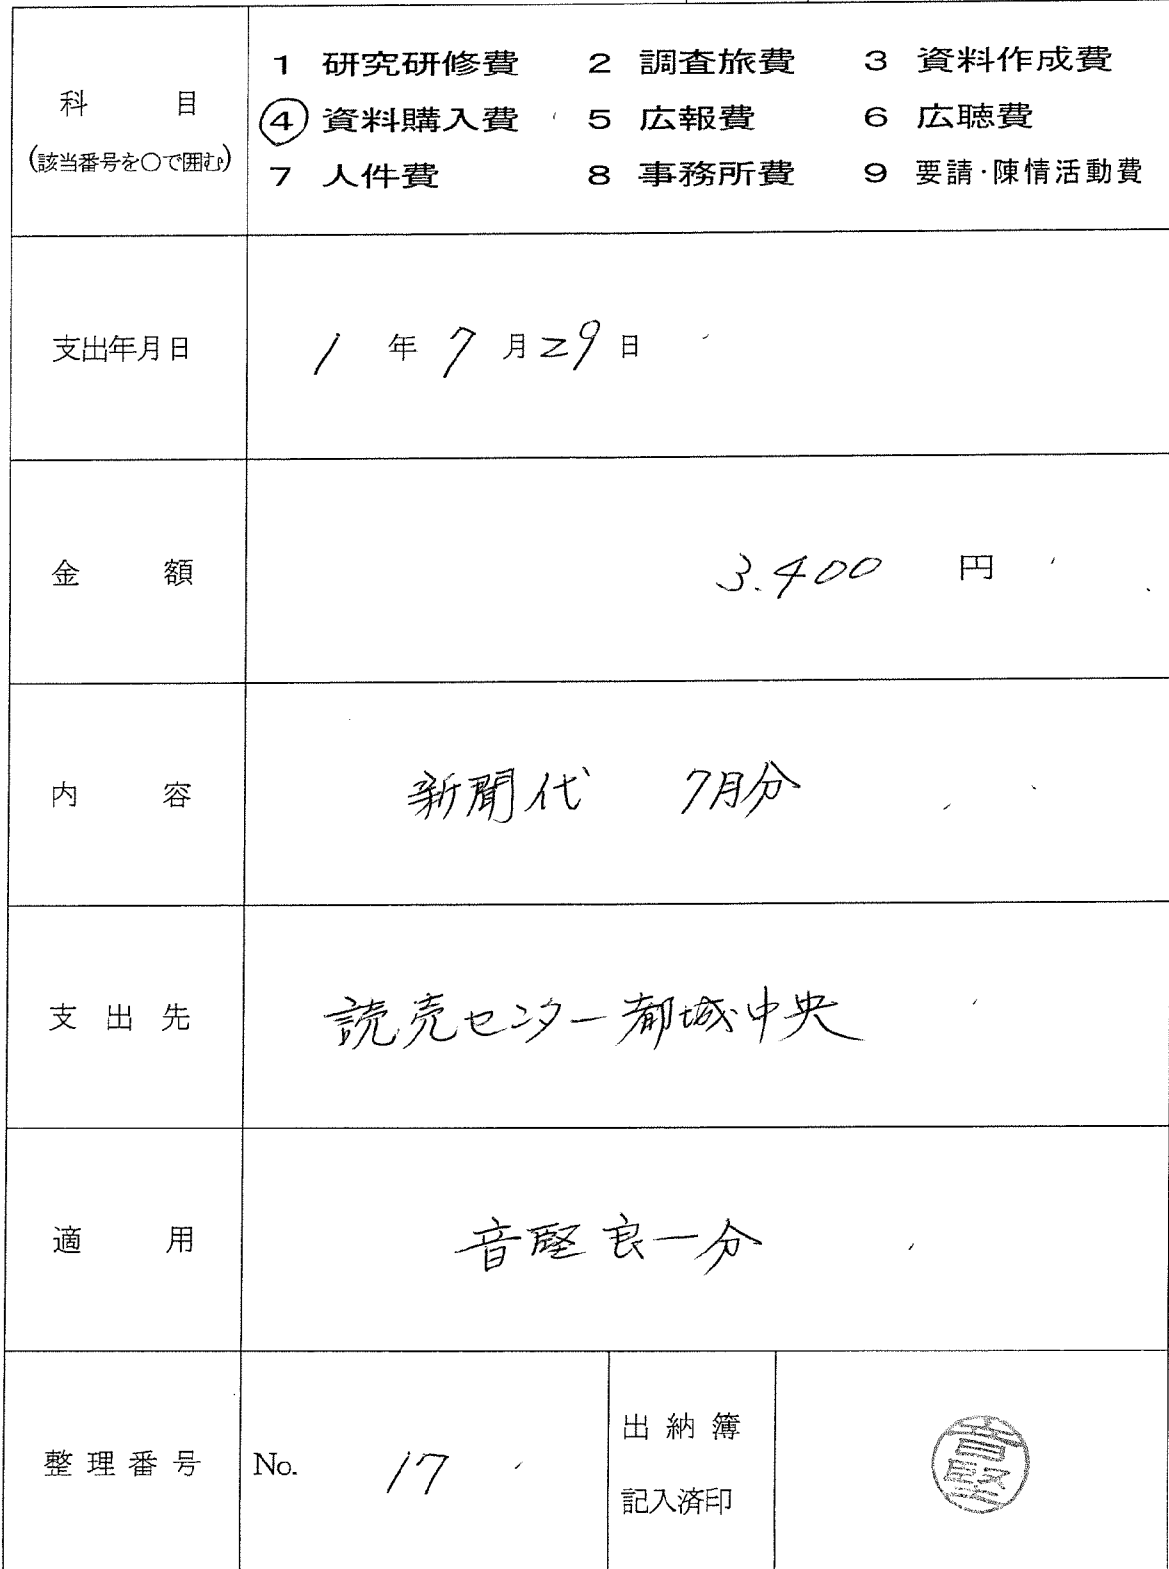 科 目
(該当番号を○で囲む)
1 研究研修費 2 調査旅費 3 資料作成費
④ 資料購入費 5 広報費 6 広聴費
7 人件費 8 事務所費 9 要請・陳情活動費
支出年月日 1 年 7 月 29 日
金 額 3.400 円
内 容 新聞代 7月分
支 出 先 読売センター都城中央
適 用 音堅良一分
整 理 番 号 No. 17
出 納 簿
記入済印
音堅